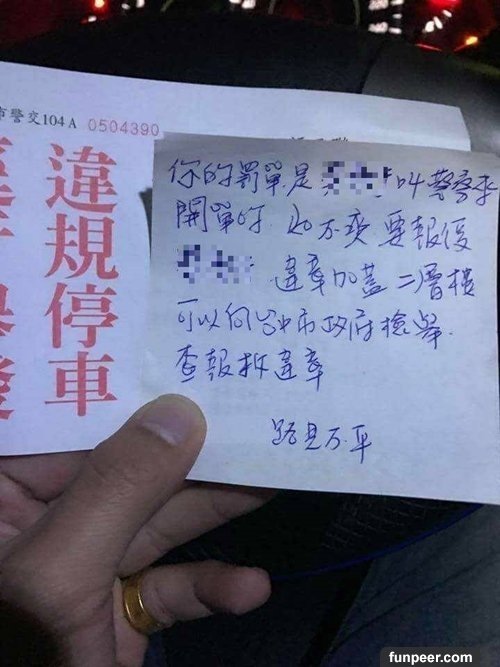 市警交104A 0504390
違規停車
你的罰單是 叫警察來
開單的.如不爽要報復
違章加蓋二層樓
可以向台中市政府檢舉.
查報拆違章
路見不平
funpeer.com